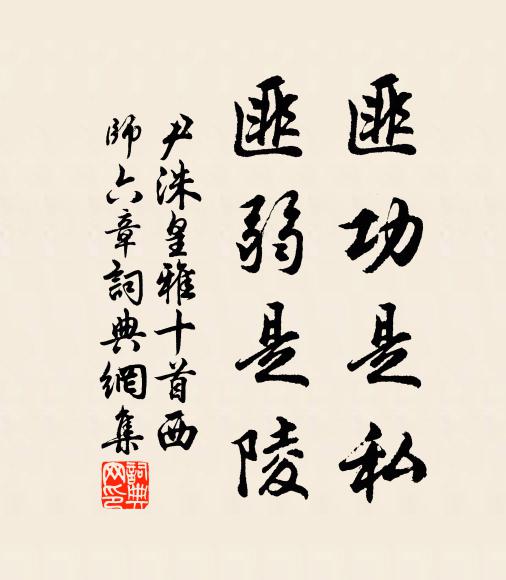 匪功是私
匪弱是陵
尹洙皇雅十首西
师六章詞典網集
詞典网印